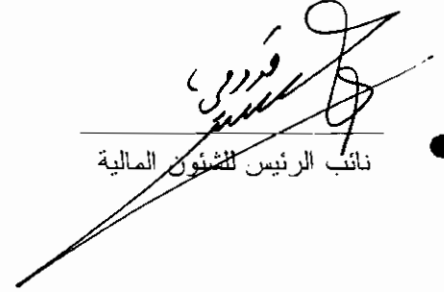 نائب الرئيس للشئون المالية